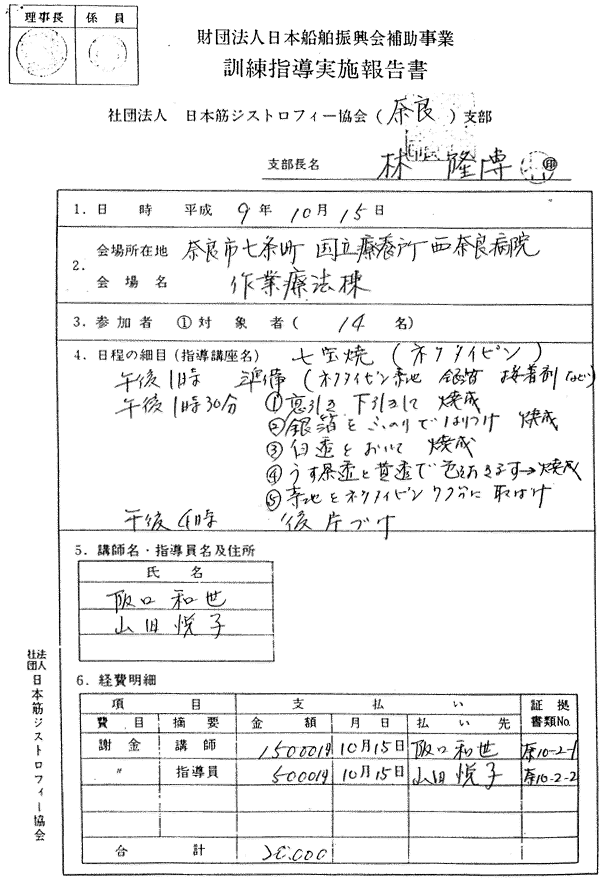 理事長 係員
財団法人日本船舶振興会補助事業
訓練指導実施報告書
社団法人 日本筋ジストロフィー協会(奈良)支部
支部長名 林 隆博 印
1. 日 時 平成 9 年 10 月 15 日
2. 会場所在地 奈良市七条町 国立療養所西奈良病院
会場名 作業療法棟
3. 参加者 ①対象者( 14 名)
4. 日程の細目(指導講座名) 七宝焼(ネクタイピン)
午後1時 準備(ネクタイピン素地 銀箔 接着剤など)
午後1時30分 ①裏引き 下引きして 焼成
②銀箔をふのりではりつけ 焼成
③白透をおいて 焼成
④うす黒透と黄透で色をおきます→焼成
⑤素地をネクタイピン に取付け
午後4時 後片づけ
5. 講師名・指導員名及住所
氏 名
阪口 和世
山田 悦子
6. 経費明細
項 目 支 払 い 証拠書類No.
費 目 摘 要 金 額 月 日 払 い 先
謝 金 講 師 15000円 10月15日 阪口 和世 奈10-2-1
〃 指導員 5000円 10月15日 山田 悦子 奈10-2-2
合 計 20,000
社団法人 日本筋ジストロフィー協会